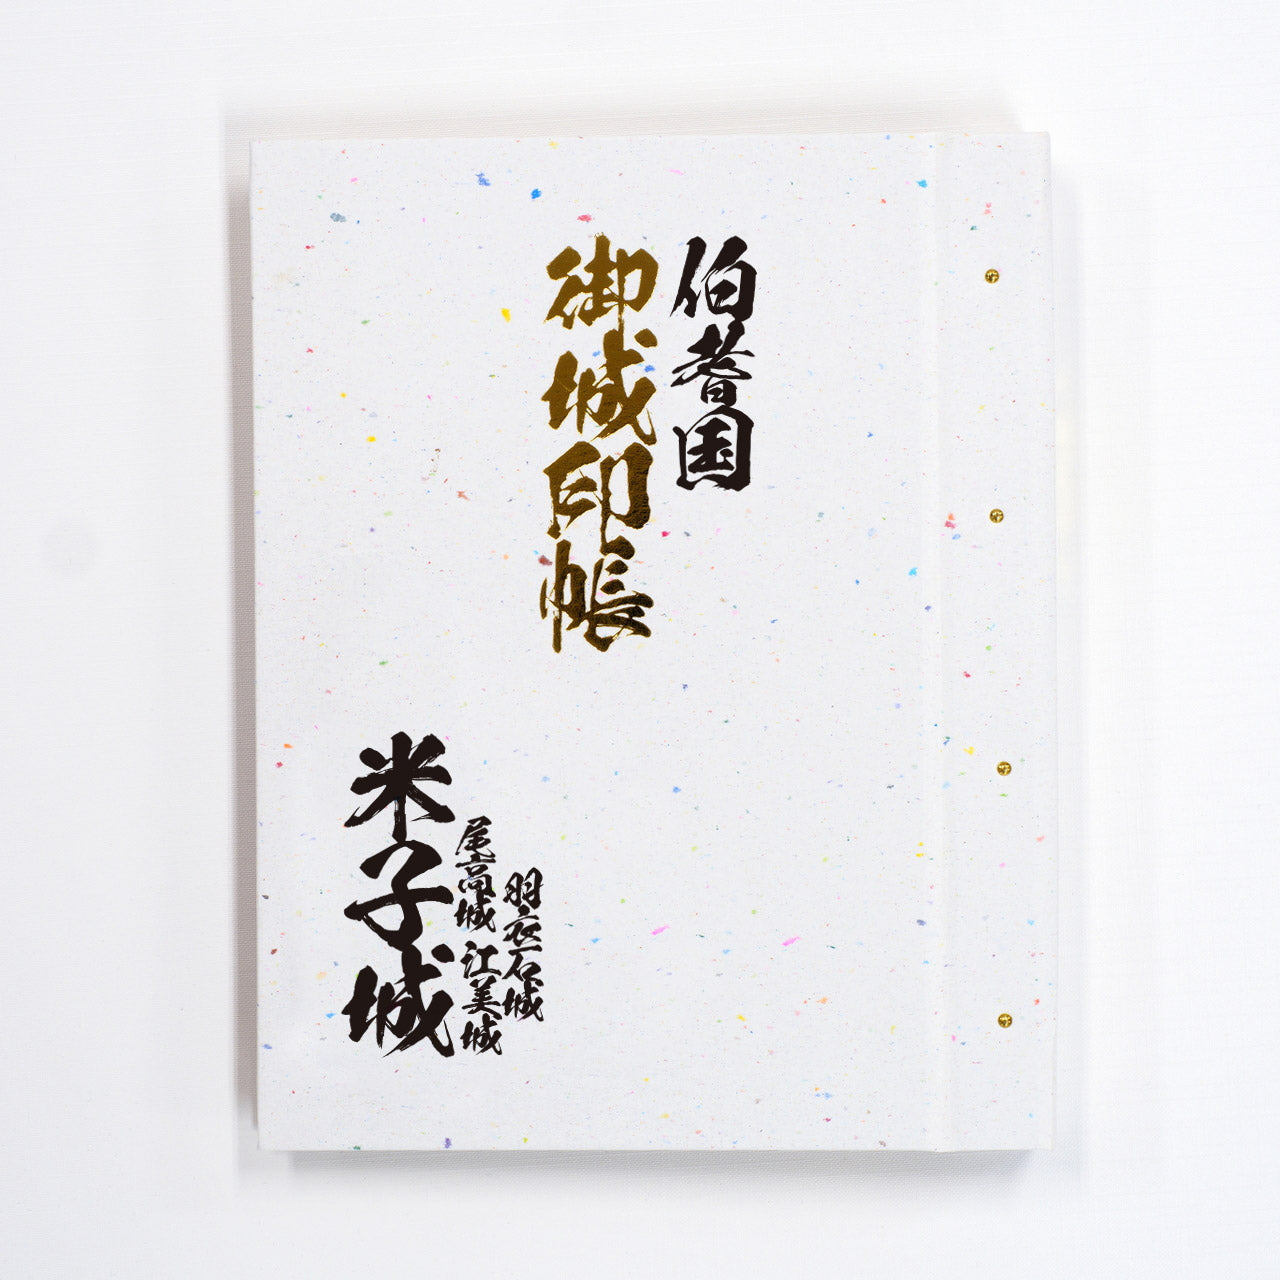 伯耆国
御城印帳
羽衣石城
尾高城 江美城
米子城